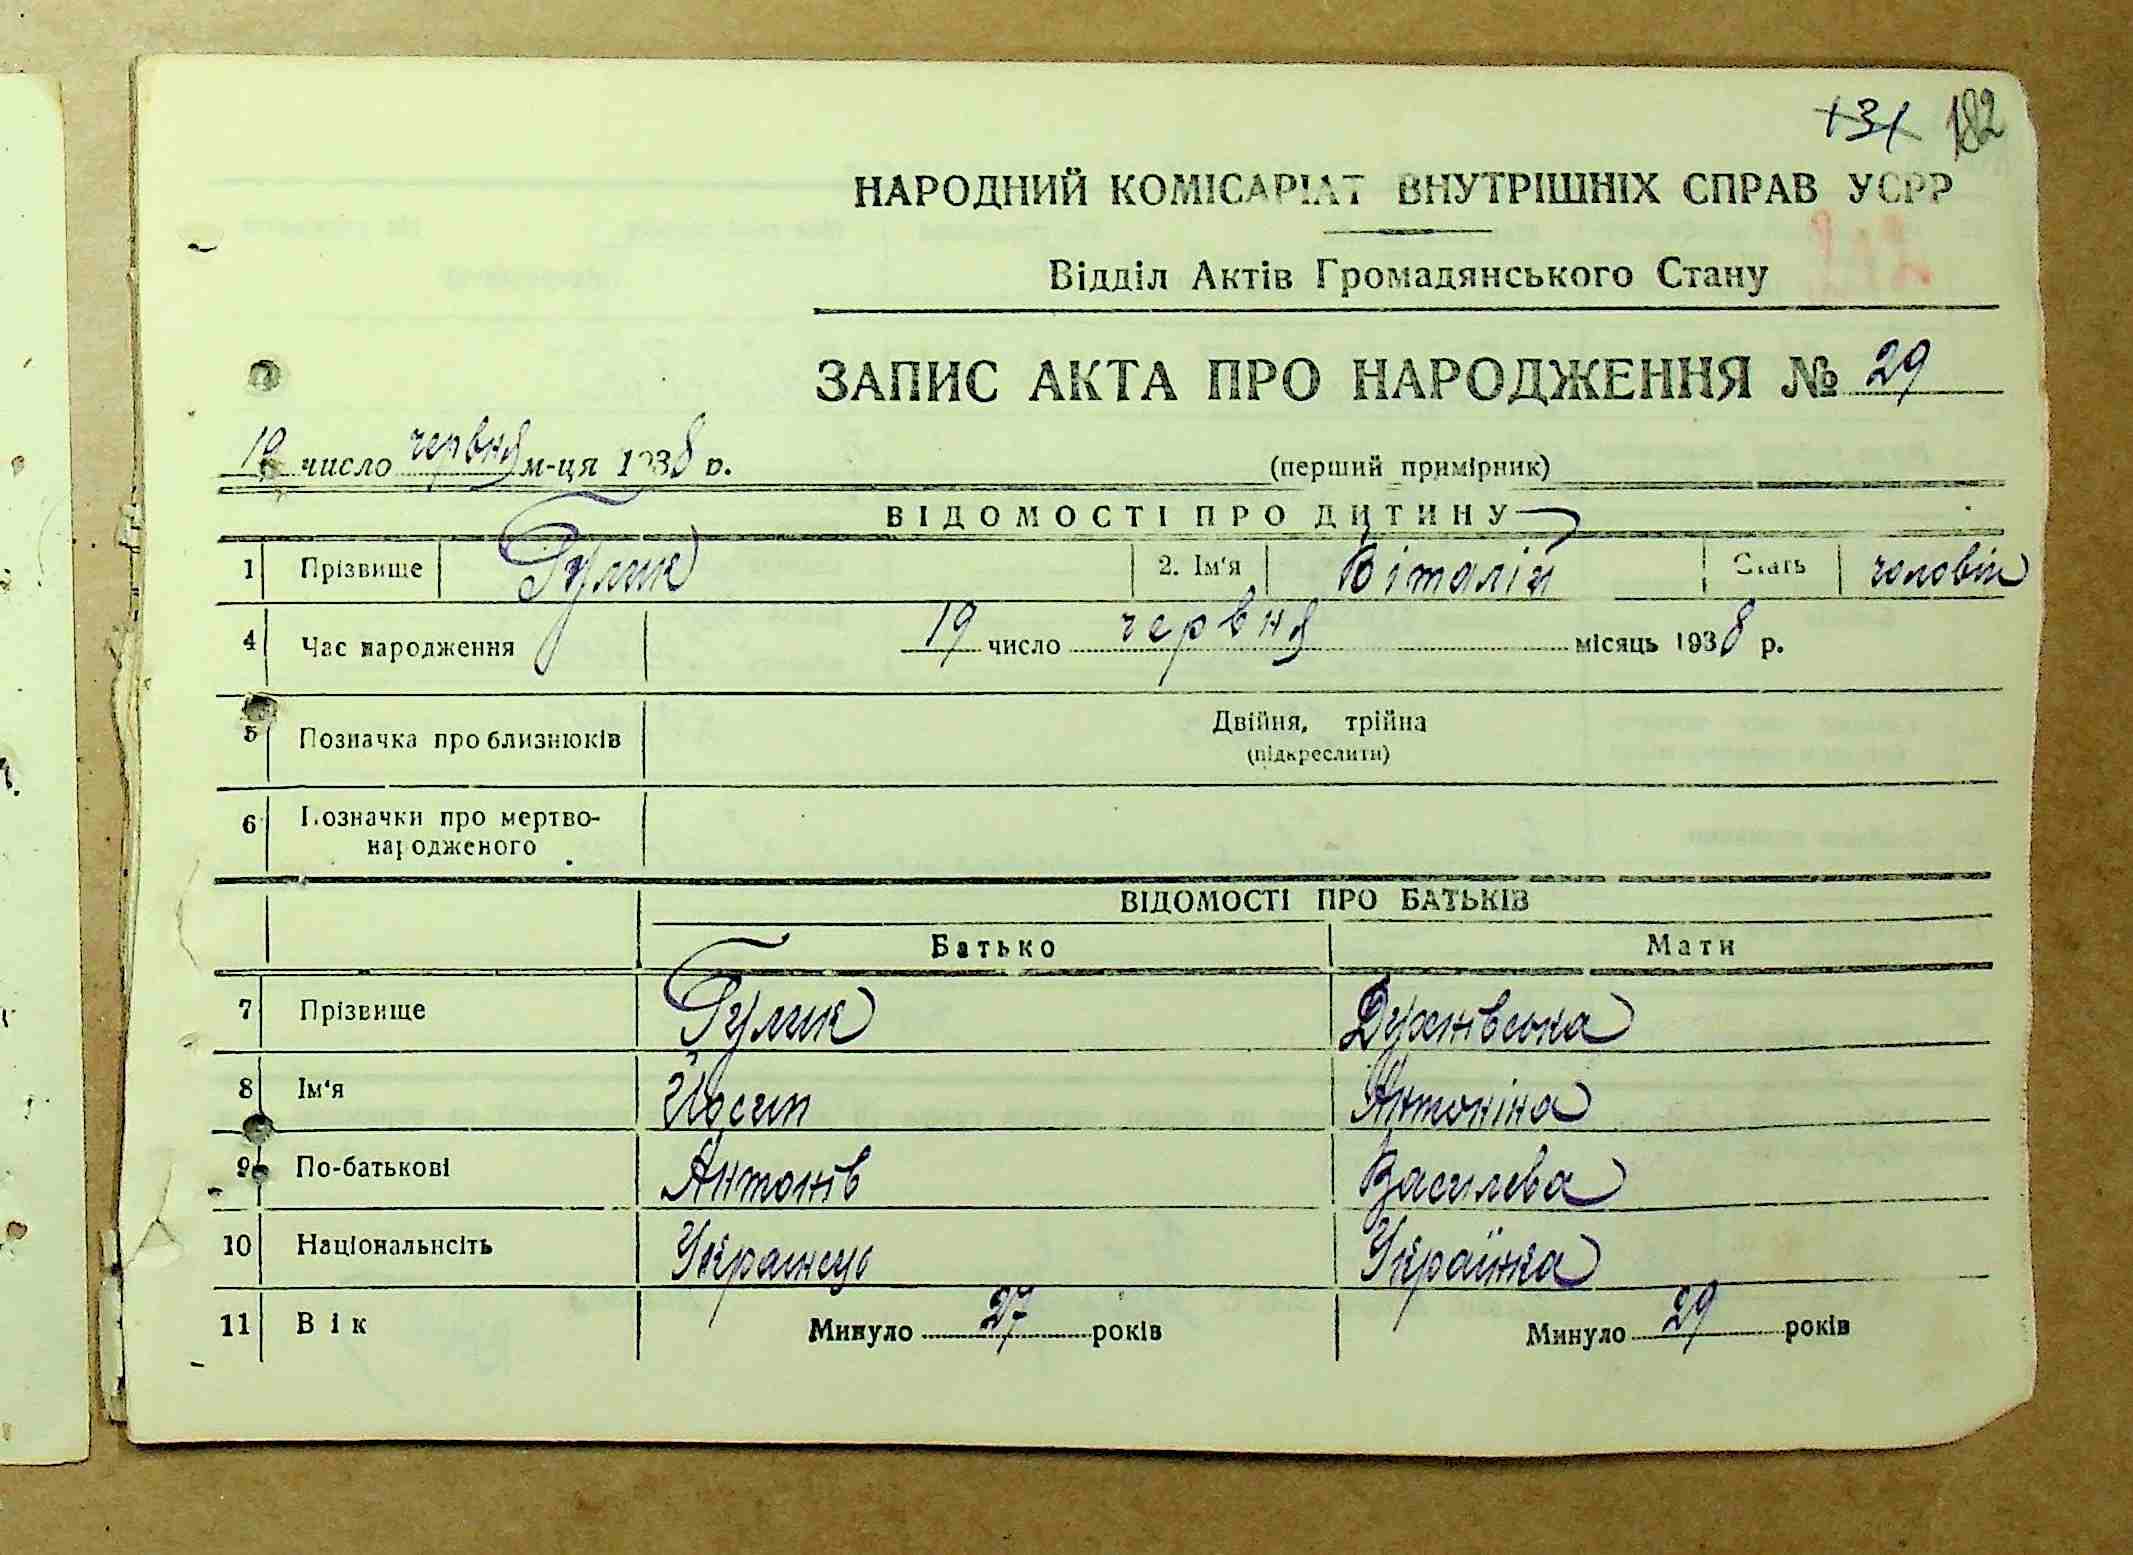 131 182
НАРОДНИЙ КОМІСАРІАТ ВНУТРІШНІХ СПРАВ УСРР
Відділ Актів Громадянського Стану
ЗАПИС АКТА ПРО НАРОДЖЕННЯ № 29
19 число червня м-ця 1938 р.
(перший примірник)
ВІДОМОСТІ ПРО ДИТИНУ
1 Прізвище Гулик 2. Ім'я Віталій Стать чоловіч
4 Час народження 19 число червня місяць 1938 р.
5 Позначка про близнюків Двійня, трійна
(підкреслити)
6 Позначки про мертво-
народженого
ВІДОМОСТІ ПРО БАТЬКІВ
Батько Мати
7 Прізвище Гулик
8 Ім'я Йосип Антоніна
9 По-батькові Антонів Василева
10 Національнсіть Українець Українка
11 Вік Минуло 27 років Минуло 29 років